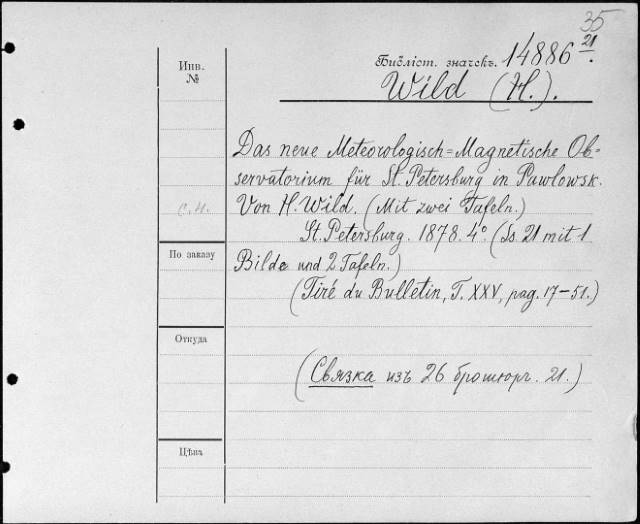 35
Инв.
№
Библіот. значекъ. 14886 21.
Wild (H.).
Das neue Meteorologisch=Magnetische Ob=
servatorium für St. Petersburg in Pawlowsk.
Von H. Wild. (Mit zwei Tafeln.)
с.н.
St. Petersburg. 1878. 4° (Ss. 21 mit 1
По заказу
Bilde und 2 Tafeln.)
(Tiré du Bulletin, T. XXV, pag. 17–51.)
Откуда
(Связка изъ 26 брошюръ. 21.)
Цѣна